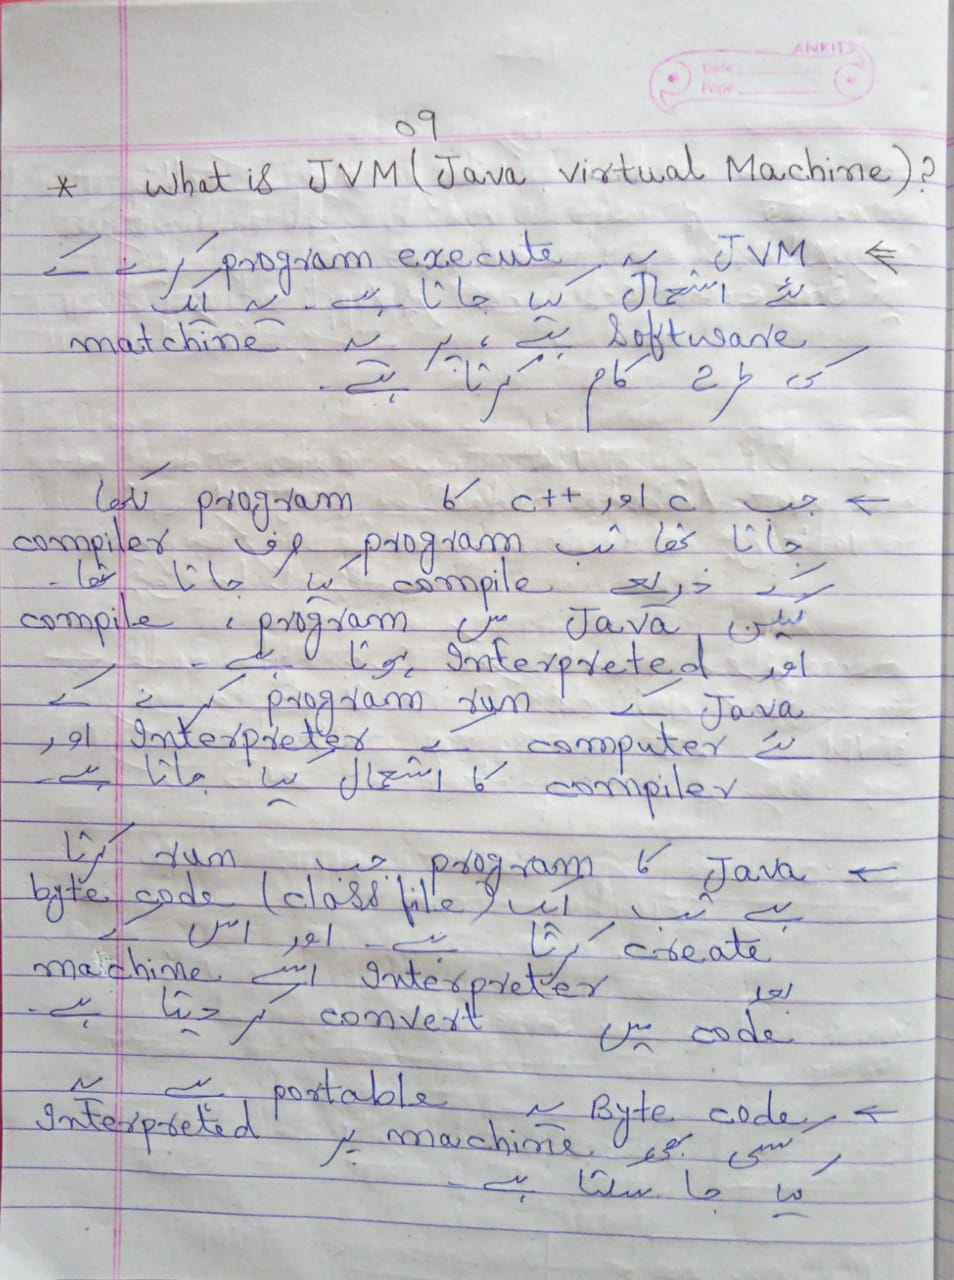 ANKIT
Date
Page
09
* What is JVM (Java virtual Machine)?
⇐ JVM یہ program execute کرنے کے
لئے استعمال کیا جاتا ہے۔ یہ ایک
Software ہے ، پر یہ matchine
کی طرح کام کرتا ہے۔
← جب c اور c++ کا program لکھا
جاتا تھا تب program صرف compiler
کے ذریعے compile کیا جاتا تھا۔
لیکن Java میں program ، compile
اور Interpreted ہوتا ہے۔
Java کے program run کرنے کے
لئے computer کے Interpreter اور
compiler کا استعمال کیا جاتا ہے۔
← Java کا program جب run کرتا
ہے تب ایک byte code (class file)
create کرتا ہے۔ اور اس کے
بعد Interpreter اسے machine
code میں convert کر دیتا ہے۔
← Byte code یہ portable ہے یہ
کسی بھی machine پر Interpreted
کیا جا سکتا ہے۔